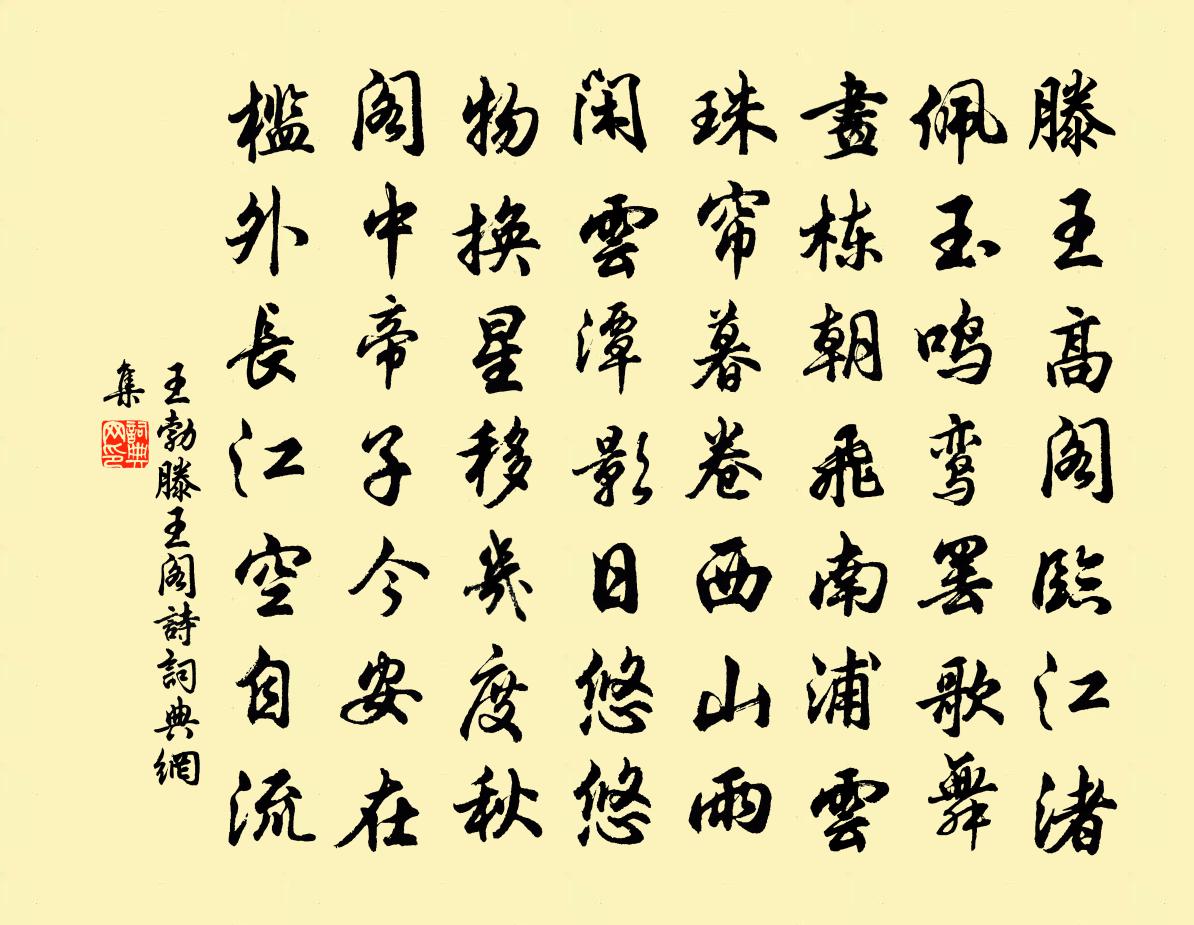 滕王高阁臨江渚
佩玉鸣鸾罢歌舞
畫栋朝飛南浦雲
珠帘暮卷西山雨
闲雲潭影日悠悠
物换星移幾度秋
阁中帝子今安在
檻外長江空自流
王勃滕王阁詩詞典網
集
詞典
网印